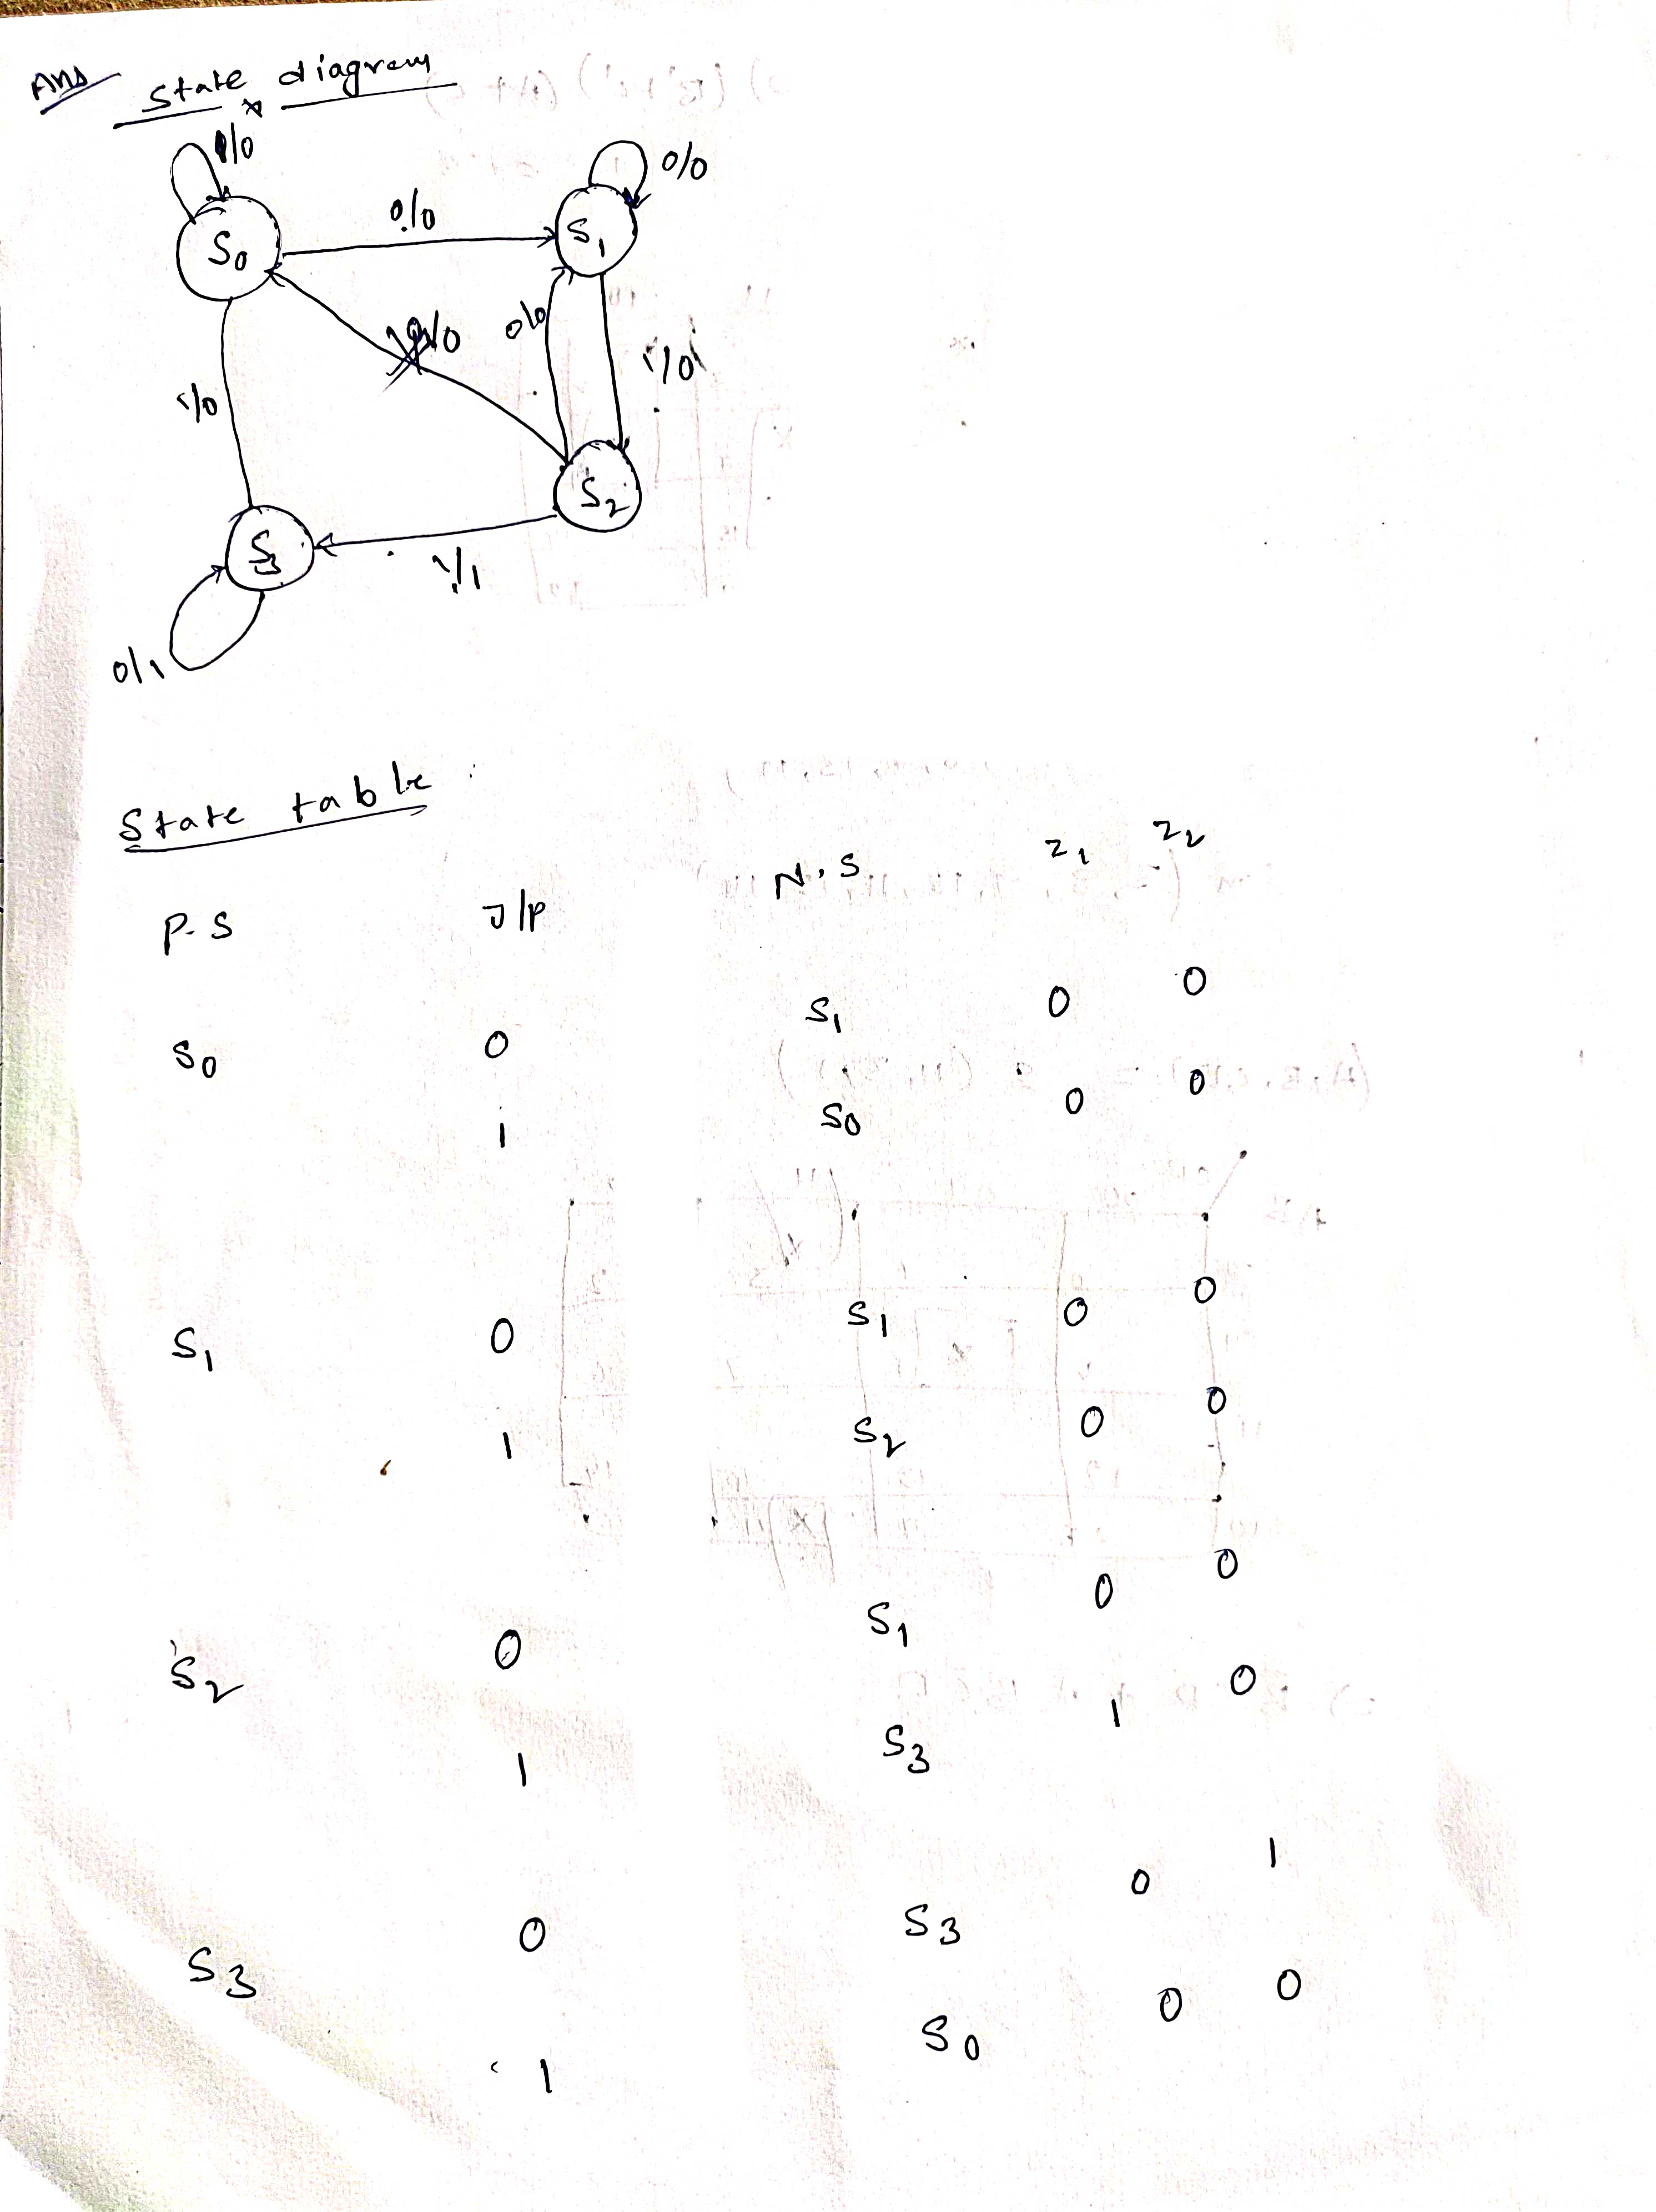 Ans State diagram
1/0
0/0
0/0
S0
S1
0/0
1/0
1/0
S2
S3
1/1
0/1
State table :
P.S I/P N.S Z1 Z2
S0 0 S1 0 0
1 S0 0 0
S1 0 S1 0 0
1 S2 0 0
S2 0 S1 0 0
1 S3 1 0
S3 0 S3 0 1
1 S0 0 0